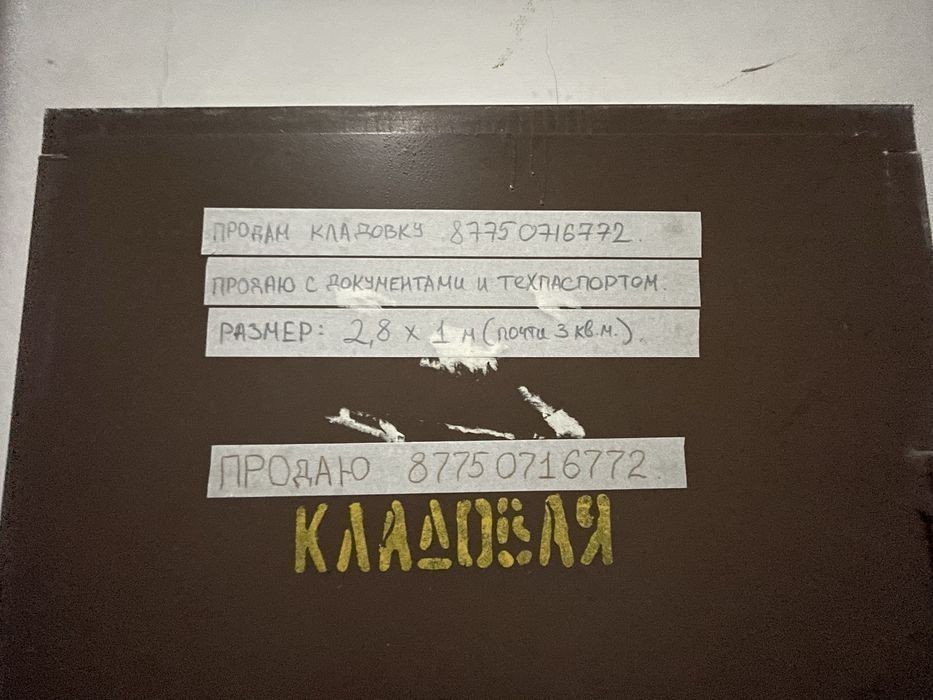 ПРОДАМ КЛАДОВКУ 87750716772.
ПРОДАЮ С ДОКУМЕНТАМИ И ТЕХПАСПОРТОМ.
РАЗМЕР: 2,8 х 1 м (почти 3 кв.м.).
ПРОДАЮ 87750716772.
КЛАДОВАЯ